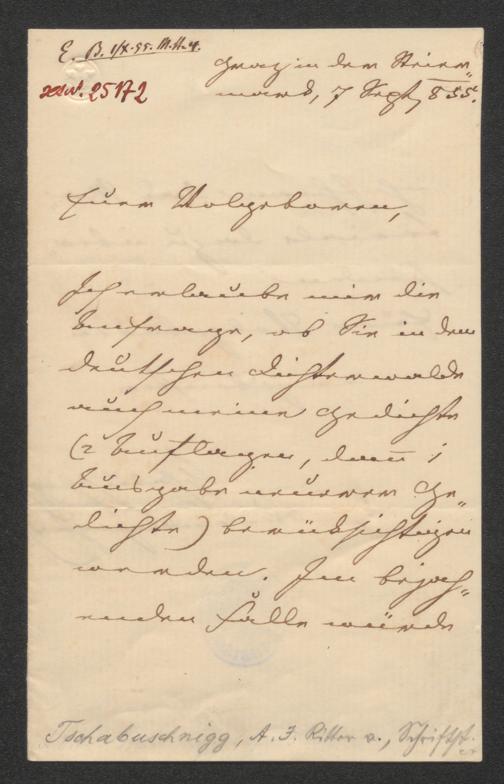 E. B. 1/X. 55. M.H.
25172
Graz in der Steier„
mark, 7 Sept 855.
Euer Wolgeboren,
Ich erlaube mir die
Anfrage, ob Sie in dem
deutschen Dichterwalde
auch meine Gedichte
(2 Auflagen, dann 1
Ausgabe neuerer Ge„
dichte) berücksichtigen
werden. Im bejah„
enden Falle würde
Tschabuschnigg, A. J. Ritter v., Schriftst.